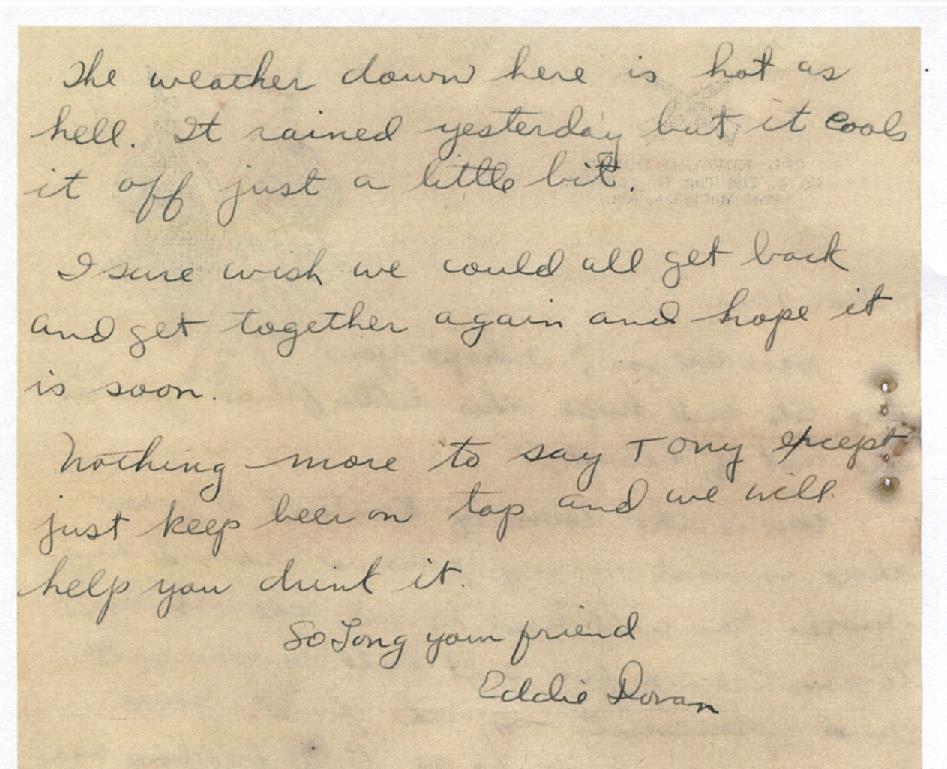 The weather down here is hot as
hell. It rained yesterday but it cools
it off just a little bit.
I sure wish we could all get back
and get together again and hope it
is soon.
Nothing more to say Tony except
just keep beer on tap and we will
help you drink it.
So Long your friend
Eddie Doran